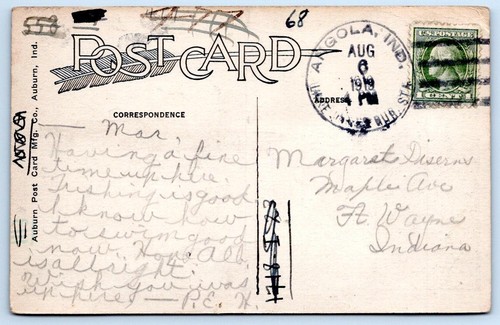 68
POST CARD
ANGOLA, IND.
AUG
6
1919
PM
LAKE JAMES RUR. STA.
U.S. POSTAGE
1 CENT 1
CORRESPONDENCE
ADDRESS
Auburn Post Card Mfg. Co., Auburn, Ind.
Mar,
Having a fine
time up here.
Fishing is good
I know how
to swim good
now. Hope Alb
is all right
wish you was
up here, — P.E. H.
Margaret Diserns
Maple Ave
Ft Wayne
Indiana